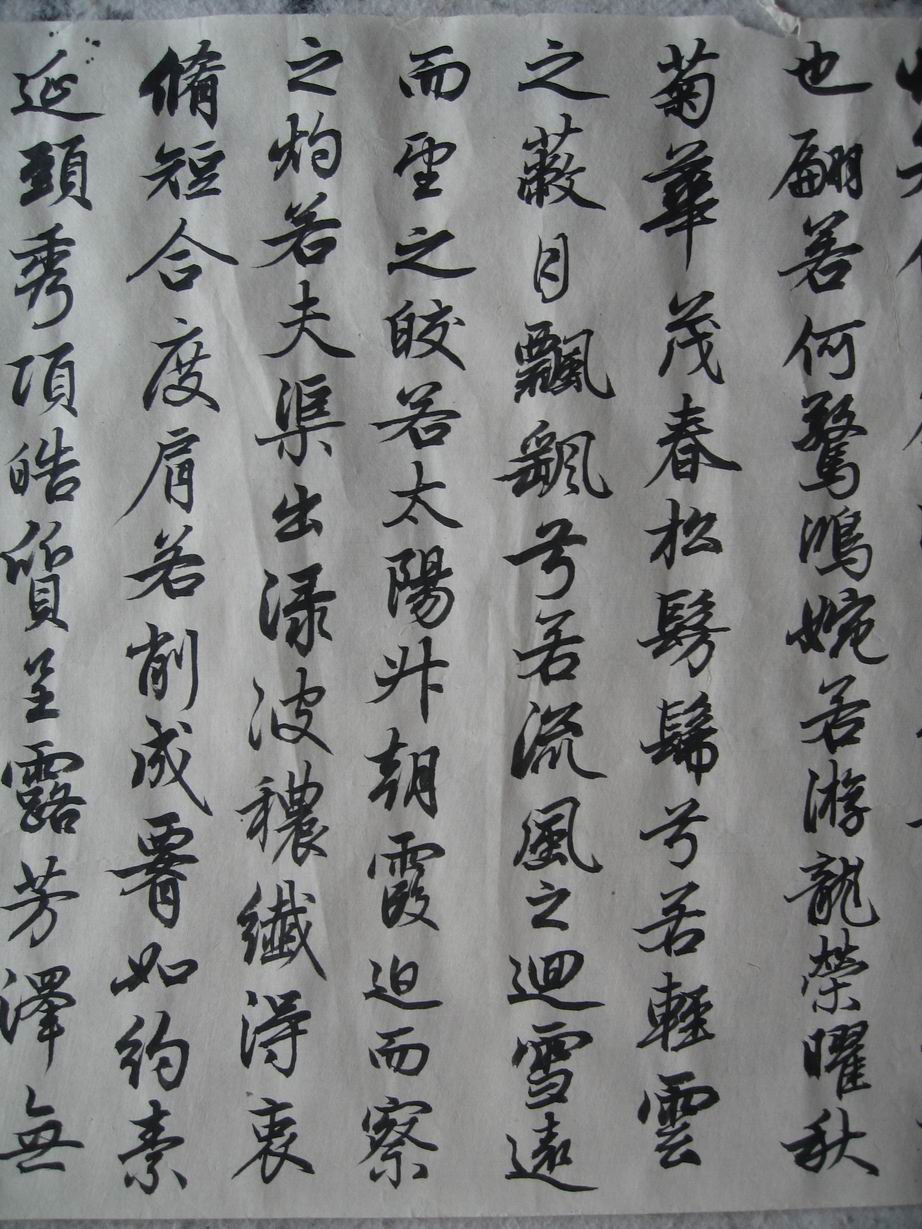 也翩若何驚鴻婉若游龍榮曜秋
菊華茂春松髣髴兮若輕雲
之蔽月飄颻兮若流風之迴雪遠
而望之皎若太陽升朝霞迫而察
之灼若夫渠出淥波穠纖得衷
脩短合度肩若削成腰如約素
延頸秀項皓質呈露芳澤無